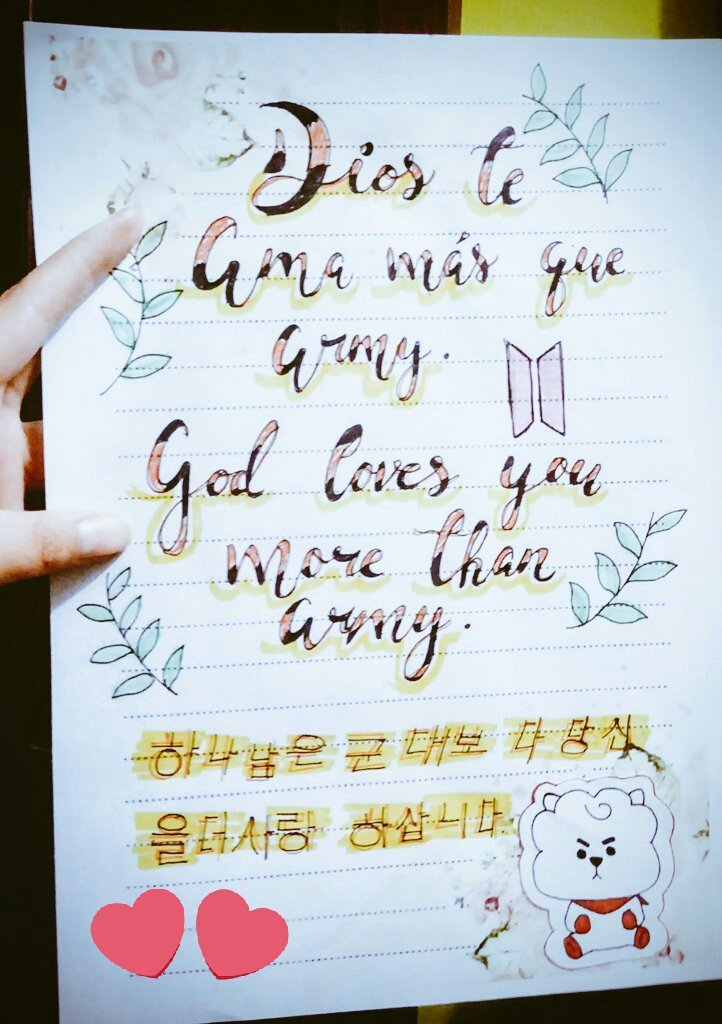 Dios te
Ama más que
army.
God loves you
more than
army.
하나님은 군대보 다 당신
을더사랑 하삽니다.